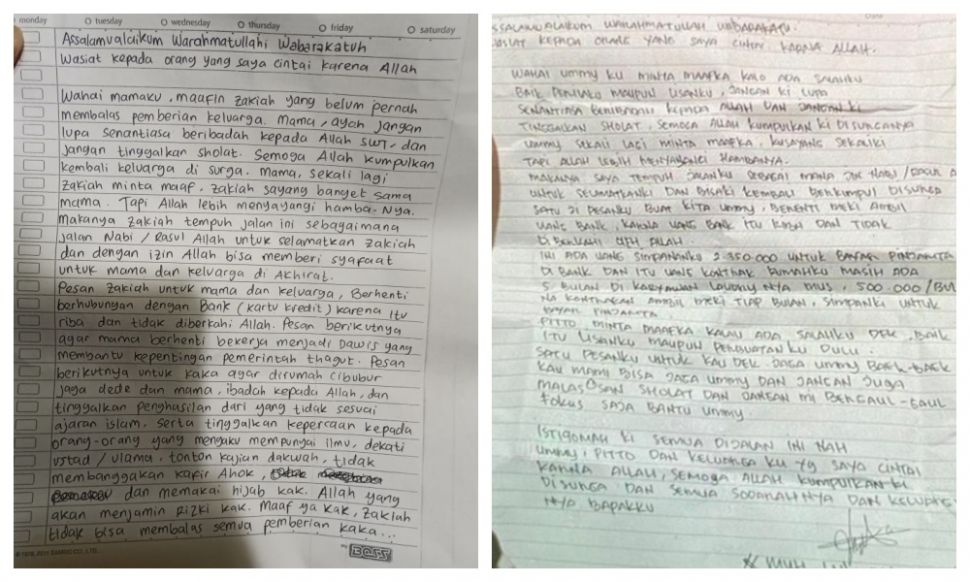 monday
tuesday
wednesday
thursday
friday
saturday
Assalamualaikum Warahmatullahi Wabarakatuh
Wasiat kepada orang yang saya cintai karena Allah
Wahai mamaku, maafin zakiah yang belum pernah
membalas pemberian keluarga. Mama/ayah jangan
lupa senantiasa beribadah kepada Allah SWT, dan
jangan tinggalkan sholat. Semoga Allah kumpulkan
kembali keluarga di surga. Mama, sekali lagi
zakiah minta maaf, zakiah sayang banget sama
mama. Tapi Allah lebih menyayangi hamba-Nya.
makanya zakiah tempuh jalan ini sebagaimana
jalan Nabi / Rasul Allah untuk selamatkan zakiah
dan dengan izin Allah bisa memberi syafaat
untuk mama dan keluarga di Akhirat.
Pesan Zakiah untuk mama dan keluarga, Berhenti
berhubungan dengan Bank (kartu kredit) karena itu
riba dan tidak diberkahi Allah. Pesan berikutnya
agar mama berhenti bekerja menjadi Dawis yang
membantu kepentingan pemerintah thagut. Pesan
berikutnya untuk kaka agar dirumah cibubur
jaga dede dan mama, ibadah kepada Allah, dan
tinggalkan penghasilan dari yang tidak sesuai
ajaran islam. serta tinggalkan kepercaan kepada
orang-orang yang mengaku mempunyai ilmu, dekati
ustad / ulama, tonton kajian dakwah, tidak
membanggakan kafir Ahok,
dan memakai hijab kak. Allah yang
akan menjamin Rizki kak. Maaf ya kak, zakiah
tidak bisa membalas semua pemberian kaka...
BOSS
SSALAMUALAIKUM WARAHMATULLAH WABARAKATU.
WASIAT KEPADA ORANG YANG SAYA CINTAI KARNA ALLAH.
WAHAI UMMY KU MINTA MAAFKA KALO ADA SALAHKU
BAIK PERILAKU MAUPUN LISANKU, JANGAN KI LUPA
SENANTIASA BERIBADAH KEPADA ALLAH DAN JANGAN KI
TINGGALKAN SHOLAT, SEMOGA ALLAH KUMPULKAN KI DI SURGANYA
UMMY SEKALI LAGI MINTA MAAFKA, KUSAYANG SEKALIKI
TAPI ALLAH LEBIH MENYAYANGI HAMBANYA.
MAKANYA SAYA TEMPUH JALANKU SEBAGAI MANA JLK NABI / RASUL A
UNTUK SELAMATKANKI DAN BISAKI KEMBALI BERKUMPUL DI SURGA
SATU JI PESANKU BUAT KITA UMMY, BERENTI MEKI AMBIL
UANG BANK, KARNA UANG BANK ITU RIBA DAN TIDAK
DI BERKAHI ALLAH.
INI ADA UANG SIMPANANKU 2.350.000 UNTUK BAYAR
DI BANK DAN ITU UANG KONTRAK RUMAHKU MASIH ADA
5 BULAN DI KARYAWAN LAUNDY NYA MUS, 500.000/BUL
NA KONTRAKAN AMBIL MEKI TIAP BULAN, SIMPANKI UNTUK
PITTO MINTA MAAFKA KALAU ADA SALAHKU DEK, BAIK
ITU LISANKU MAUPUN PERBUATANKU DULU.
SATU PESANKU UNTUK KAU DEK. JAGA UMMY BAEK-BAEK
KAU MAMI BISA JAGA UMMY DAN JANGAN JUGA
MALAS SHOLAT DAN JANGAN MI BERGAUL-GAUL
FOKUS SAJA BANTU UMMY.
ISTIQOMAH KI SEMUA DIJALAN INI NAH
UMMY, PITTO DAN KELUARGA KU YG SAYA CINTAI
KARNA ALLAH, SEMOGA ALLAH KUMPULKAN KI
DI SURGA DAN SEMUA SODARAHNYA DAN KELUARG-
NYA BAPAKKU
MUH